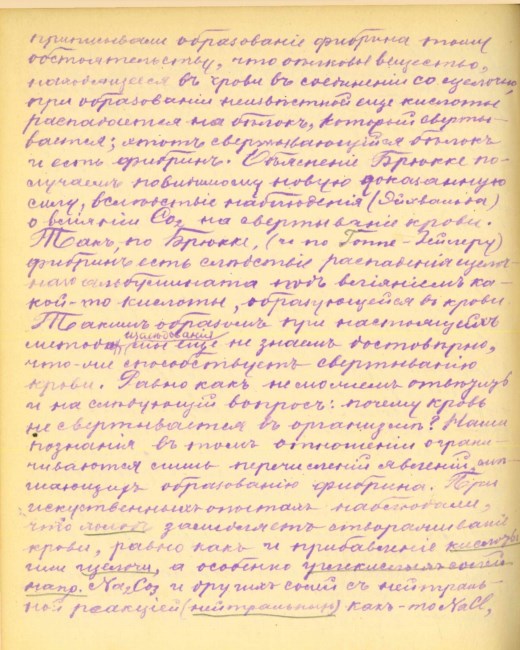 приписывали образованіе фибрина тому
обстоятельству, что бѣлковое вещество,
находящееся въ крови въ соединеніи со щелочью,
при образованіи неизвѣстной еще кислоты
распадается на бѣлокъ, который сверты-
вается; этотъ свертывающійся бѣлокъ
и есть фибринъ. Объясненіе Брюкке по-
лучаетъ повидимому новую доказанную
силу, вслѣдствіе наблюденія (Эйхвальда)
о вліяніи Co₂ на свертываніе крови.
Такъ, по Брюкке, (и по Гоппе-Зейлеру)
фибринъ есть слѣдствіе распаденія щелоч-
наго альбумината подъ вліяніемъ ка-
кой-то кислоты, образующейся въ крови.
Такимъ образомъ при настоящихъ
методахъ изслѣдованія мы еще не знаемъ достовѣрно,
что-же способствуетъ свертыванію
крови. Равно какъ не можемъ отвѣтить
и на слѣдующій вопросъ: почему кровь
не свертывается въ организмѣ? Наши
познанія въ этомъ отношеніи ограни-
чиваются лишь перечисленіемъ явленій,
мѣшающихъ образованію фибрина. При
искуственныхъ опытахъ наблюдали,
что холодъ замедляетъ створаживаніе
крови, равно какъ и прибавленіе кислоты
или щелочи, а особенно углекислыхъ солей
напр. Na₂Co₃ и другихъ солей съ нейтраль-
ной реакціей (нейтральныхъ) какъ-то NaCl,